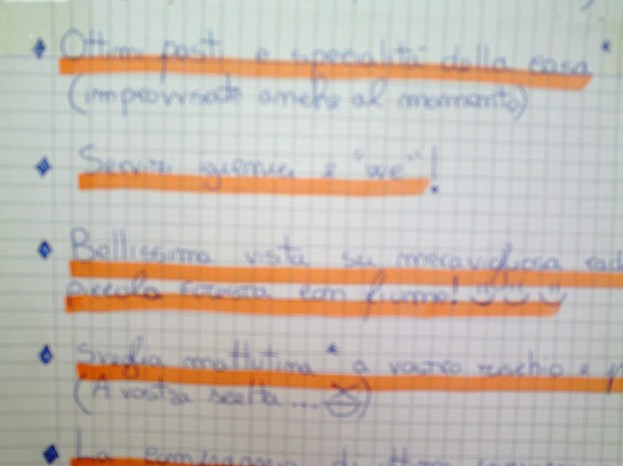 Ottimi pasti e specialità della casa *
(improvvisate anche al momento)
Servizi igienici e "we"!
Bellissima vista su meravigliosa
piccola foresta con fiume!
Sveglia mattutina * a vostro rischio e
(A vostra scelta...)
La compagnia di